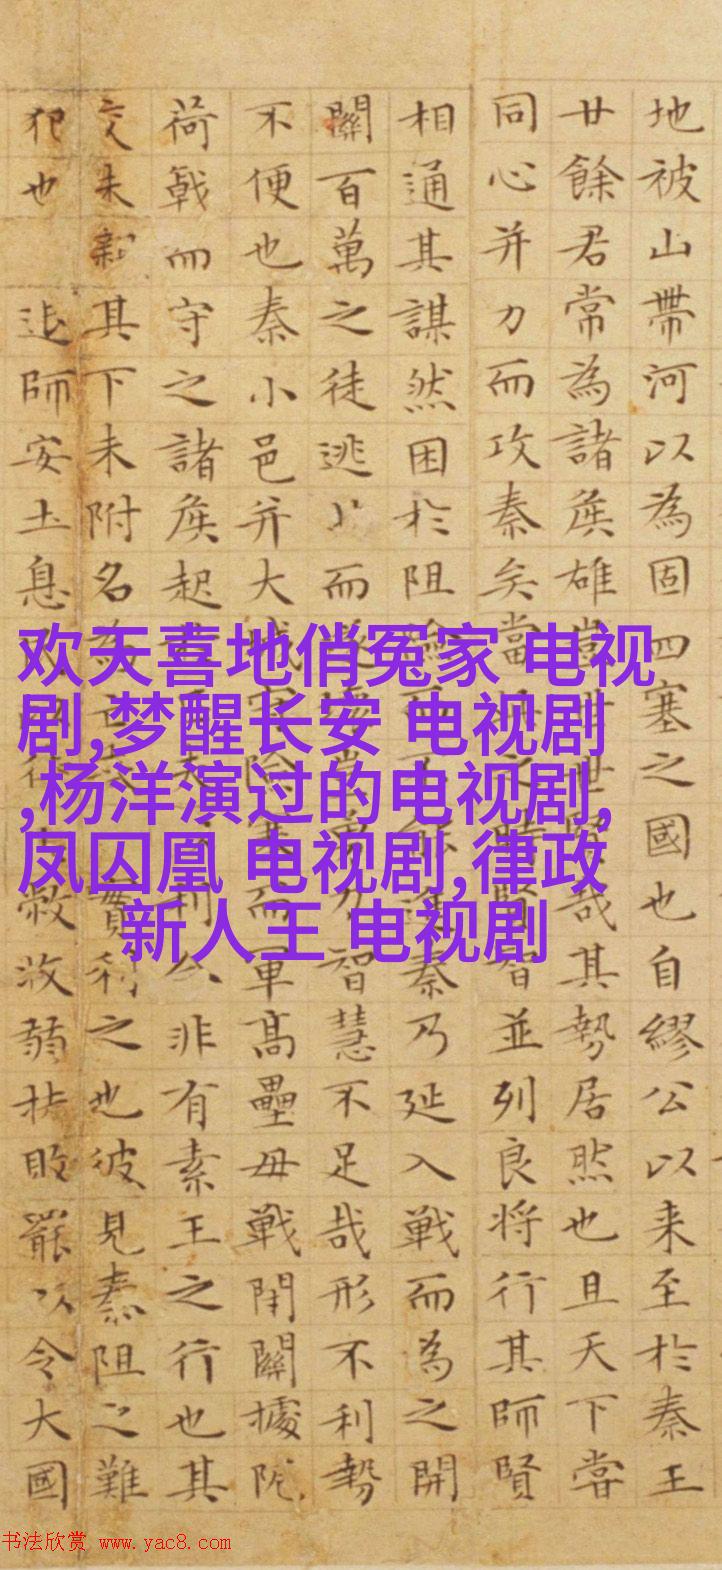 地被山帶河以為固四塞之國也自繆公以来至於秦王
廿餘君常為諸侯雄豈世世賢哉其勢居然也且天下甞
同心并力而攻秦矣當此之時賢智並列良将行其師賢
相通其謀然困於阻險而不能進秦乃延入戰而為之開
關百萬之徒逃北而遂壞豈勇力智慧不足哉形不利勢
不便也秦小邑并大城守險塞而軍高壘毋戰閉關據阨
荷戟而守之諸侯起利非有素王之行也其
交未親其下未附名為亡秦實利之也彼見秦阻之難
犯也 退師安土息收弱扶敗罷以令大國
欢天喜地俏冤家 电视
剧,梦醒长安 电视剧
,杨洋演过的电视剧,
凤囚凰 电视剧,律政
新人王 电视剧
书法欣赏 www.yac8.com